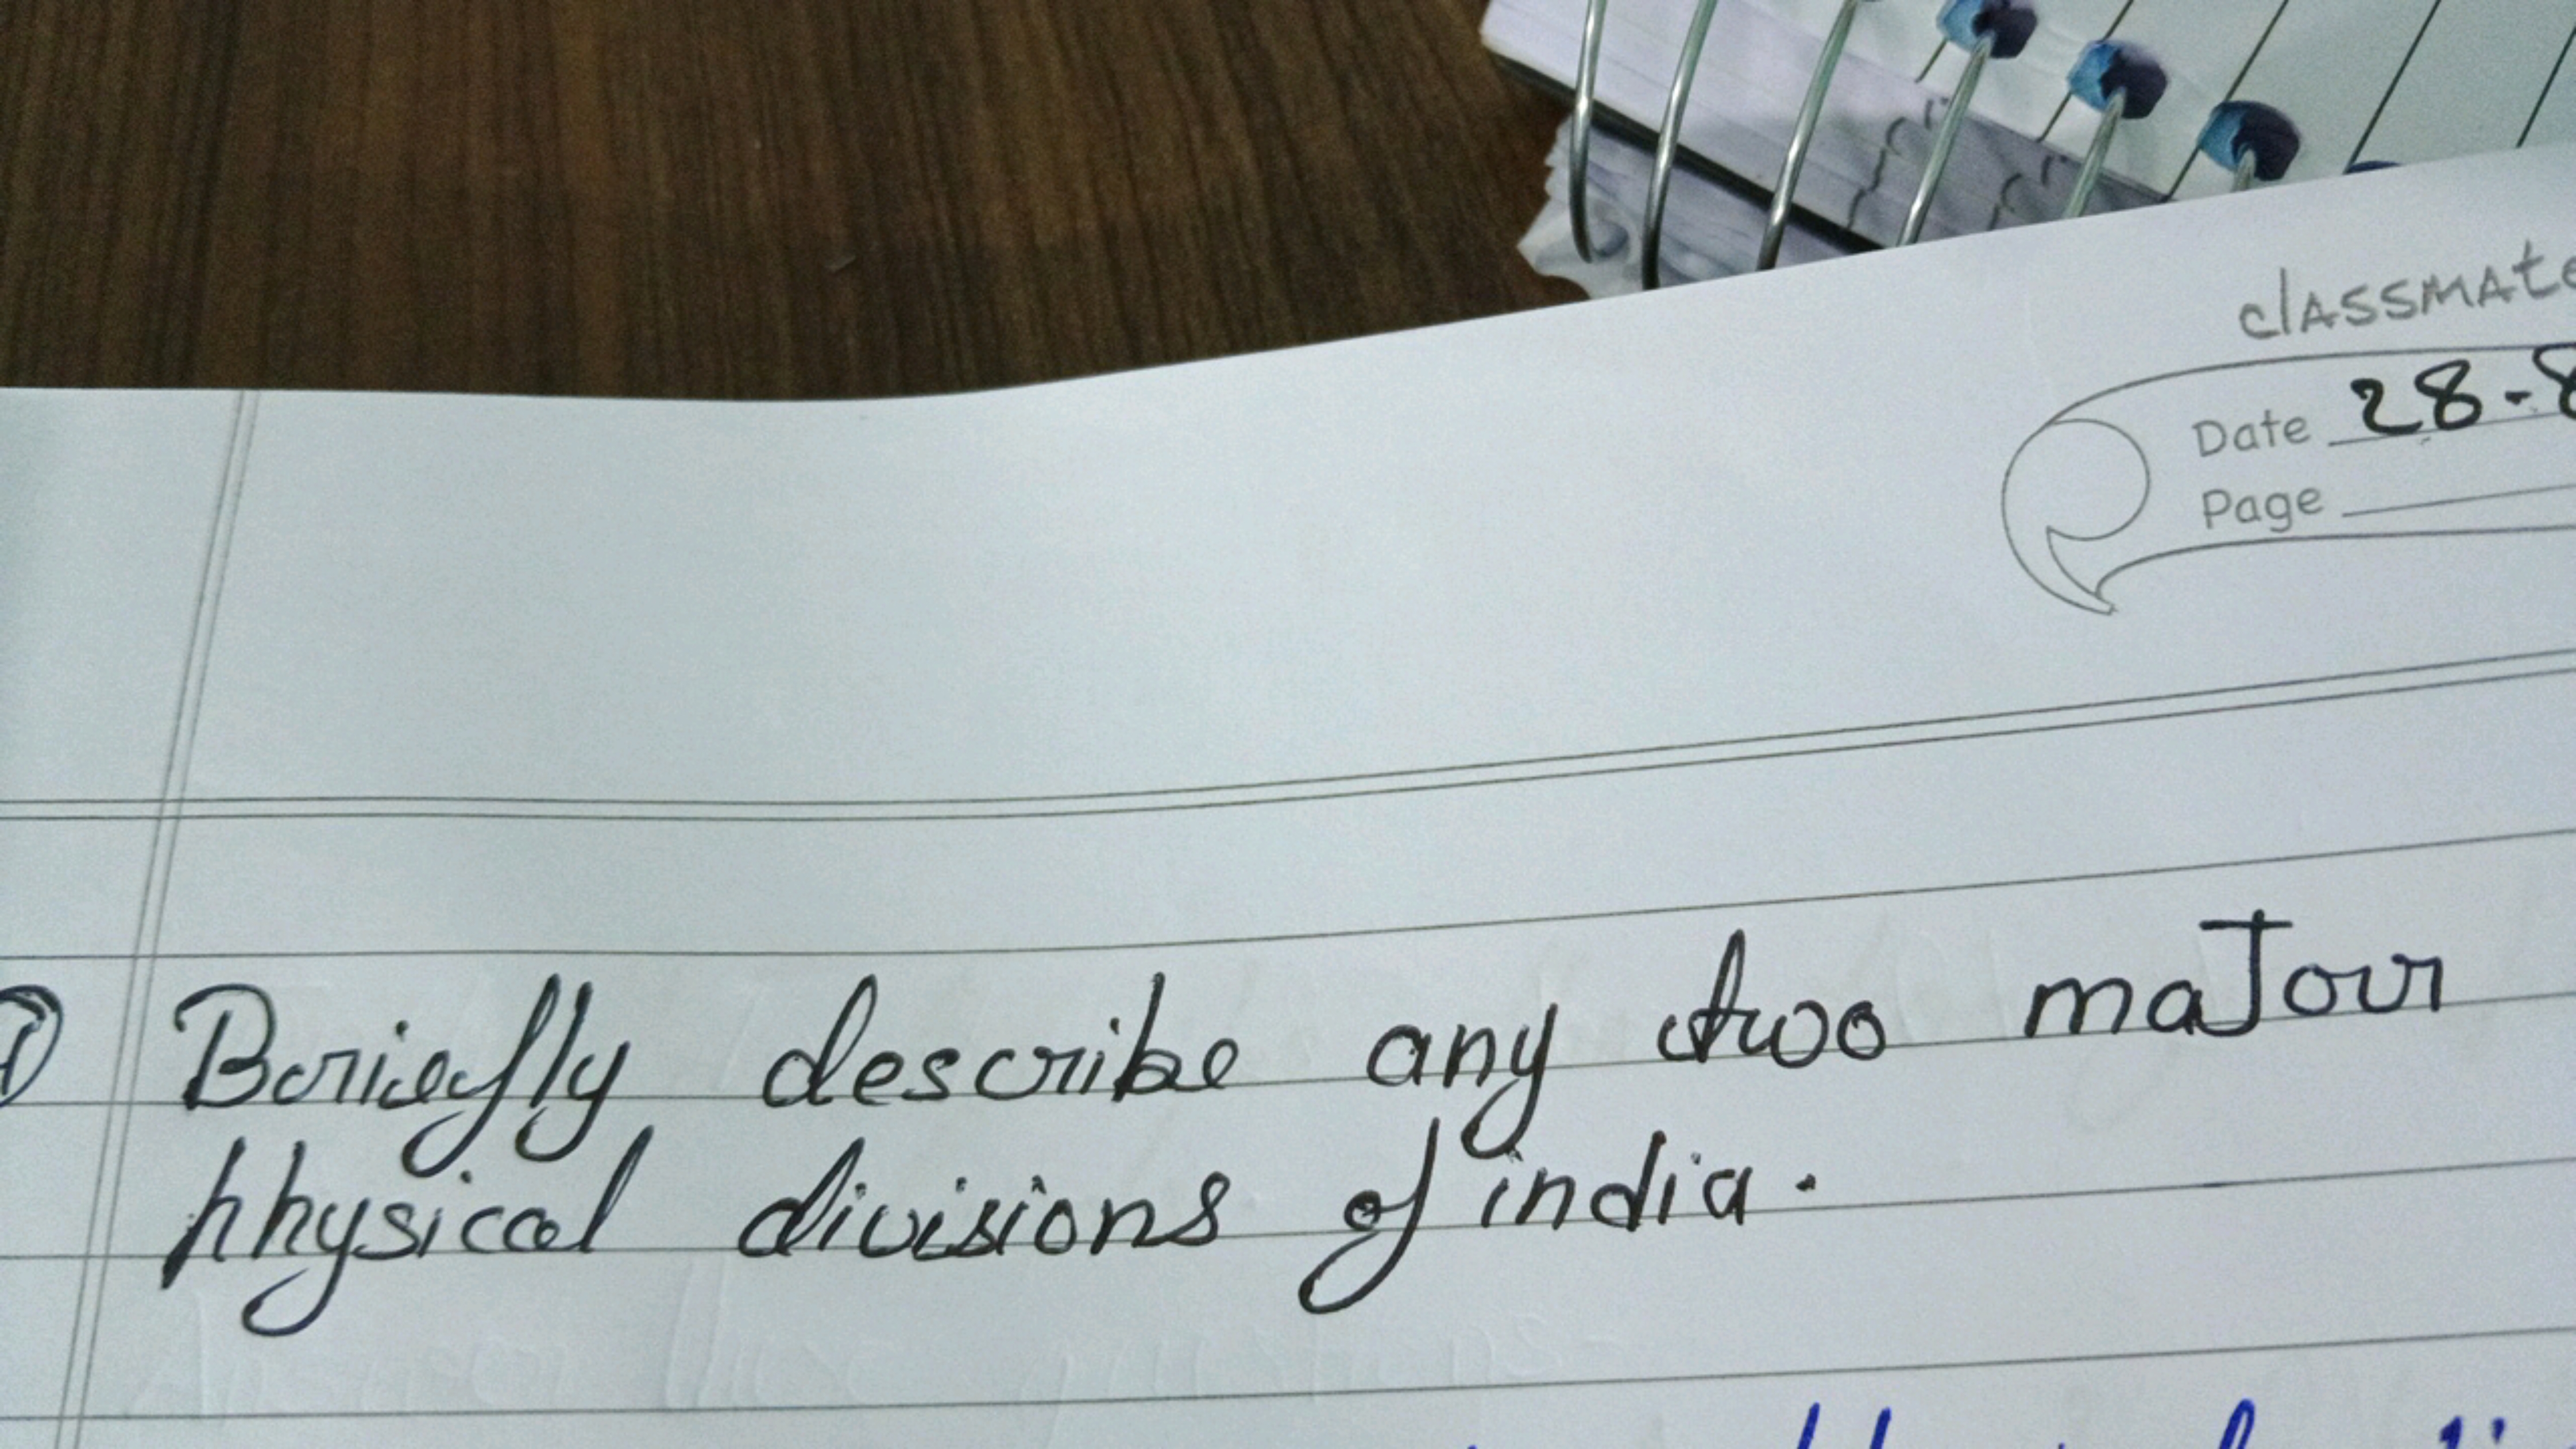 classmate
Date 28-8
Page
① Briefly describe any two major
physical divisions of india.